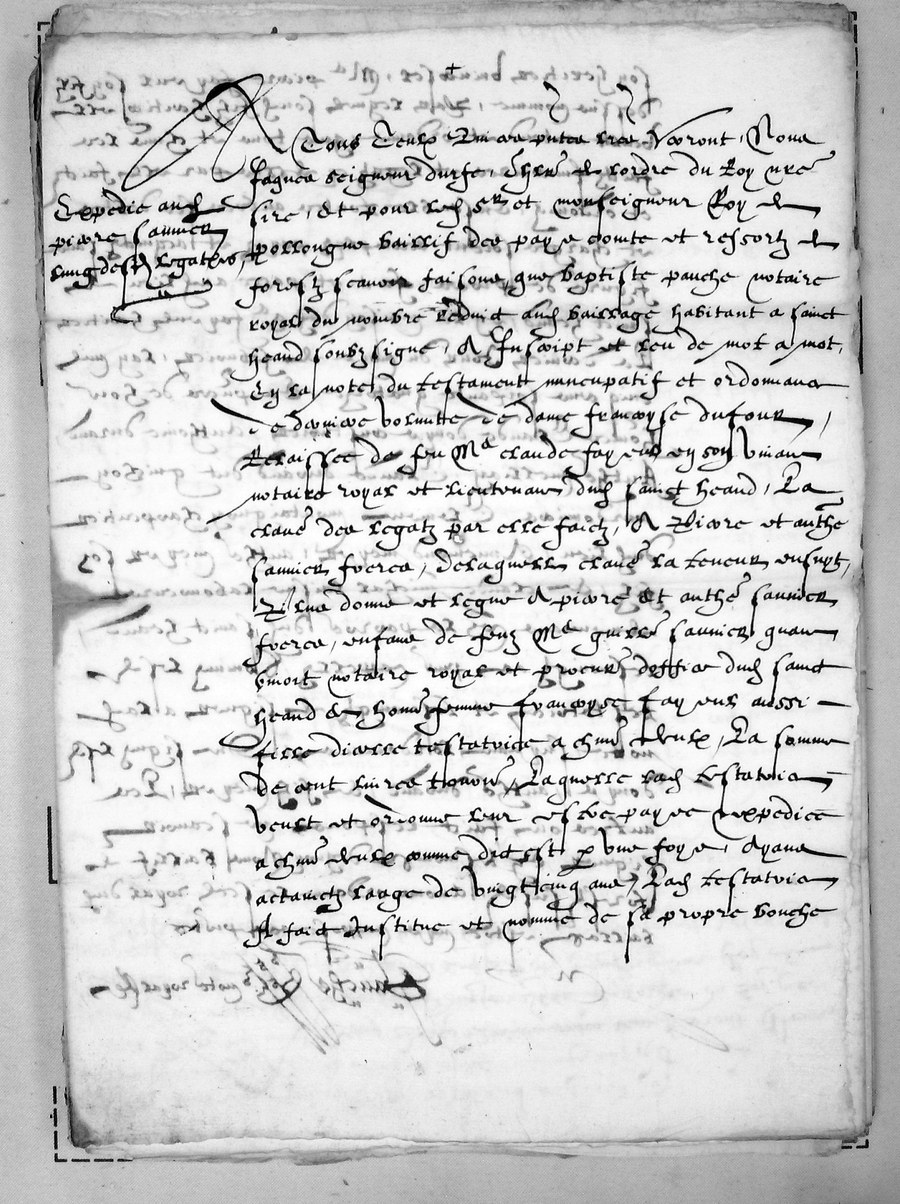 A Tous Ceulx qui ces pntes lres Verront, Nous
Jaques seigneur durfe, chlr de lordre du Roy nre
sire, et pour led sr et monseigneur Roy de
pollongne baillif des pays comte et ressortz de
forestz scavoir faisons, que baptiste panche notaire
royal du nombre reduict aud bailliage habitant a sainct
heand soubzsigne, A Inscript et leu de mot a mot,
En la note du testament nuncupatif et ordonnance
de derniere volunte de dame francoyse dufour,
Relaissee de feu Me claude fayeulx en son vivant
notaire royal et lieutenant dud sainct heand, La
clause des legatz par elle faictz, A Pierre et anthe
saunier freres, de laquelle clause la teneur ensuyt,
Plus donne et legue A pierre et anthe saunier
freres, enfans de feuz Me guille saunier quant
vivoit notaire royal et procureur doffice dud sainct
heand & honne femme francoyse fayeulx aussi
fille dicelle testatrice a chun deulx, La somme
de cent livres tournois, Laquelle lad testatrice
veult et ordonne leur estre payee & expediee
a chun deulx comme dict est p une foys, Ayans
actainctz laage de vingt cinq ans, Lad testatrice
A faict Institue et nomme de sa propre bouche
Expedie aud
pierre saunier
lung desd legataires,